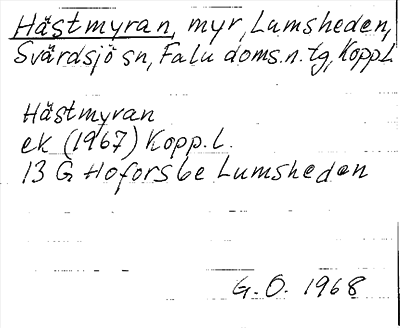 Hästmyran, myr, Lumsheden,
Svärdsjö sn, Falu doms.n.tg, Kopp.L
Hästmyran
ek (1967) Kopp.L.
13 G Hofors 6e Lumsheden
G.O. 1968